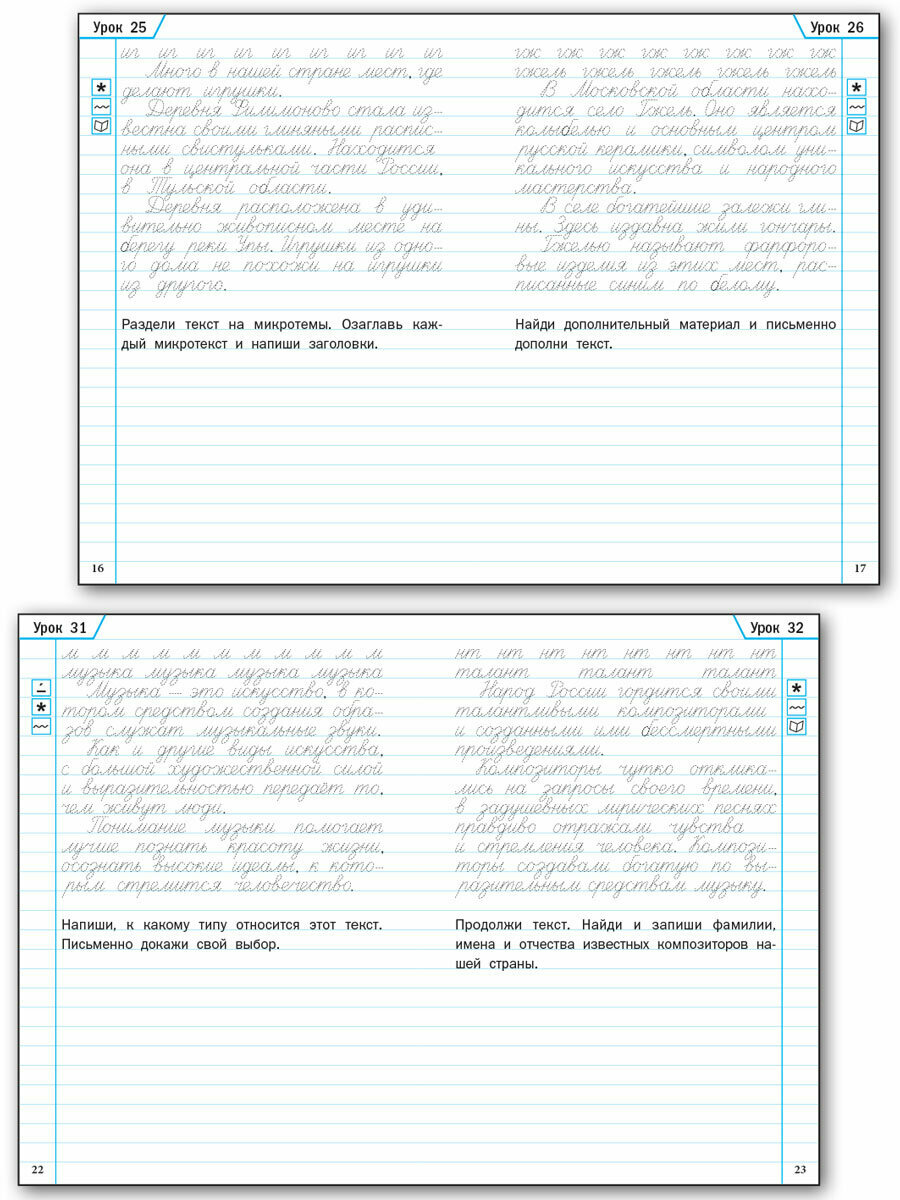 Урок 25
иг иг иг иг иг иг иг иг иг
Много в нашей стране мест, где
делают игрушки.
Деревня Филимоново стала из-
вестна своими глиняными распис-
ными свистульками. Находится
она в центральной части России,
в Тульской области.
Деревня расположена в уди-
вительно живописном месте на
берегу реки Упы. Игрушки из одно-
го дома не похожи на игрушки
из другого.
Раздели текст на микротемы. Озаглавь каж-
дый микротекст и напиши заголовки.
16
Урок 26
гж гж гж гж гж гж гж гж
гжель гжель гжель гжель гжель
В Московской области нахо-
дится село Гжель. Оно является
колыбелью и основным центром
русской керамики, символом уни-
кального искусства и народного
мастерства.
В селе богатейшие залежи гли-
ны. Здесь издавна жили гончары.
Гжелью называют фарфоро-
вые изделия из этих мест, рас-
писанные синим по белому.
Найди дополнительный материал и письменно
дополни текст.
17
Урок 31
м м м м м м м м м м м
музыка музыка музыка музыка
Музыка — это искусство, в ко-
тором средством создания обра-
зов служат музыкальные звуки.
Как и другие виды искусства,
с большой художественной силой
и выразительностью передаёт то,
чем живут люди.
Понимание музыки помогает
лучше познать красоту жизни,
осознать высокие идеалы, к кото-
рым стремится человечество.
Напиши, к какому типу относится этот текст.
Письменно докажи свой выбор.
22
Урок 32
нт нт нт нт нт нт нт нт
талант талант талант
Народ России гордится своими
талантливыми композиторами
и созданными ими бессмертными
произведениями.
Композиторы чутко отклика-
лись на запросы своего времени,
в задушевных лирических песнях
правдиво отражали чувства
и стремления человека. Компози-
торы создавали богатую по вы-
разительным средствам музыку.
Продолжи текст. Найди и запиши фамилии,
имена и отчества известных композиторов на-
шей страны.
23